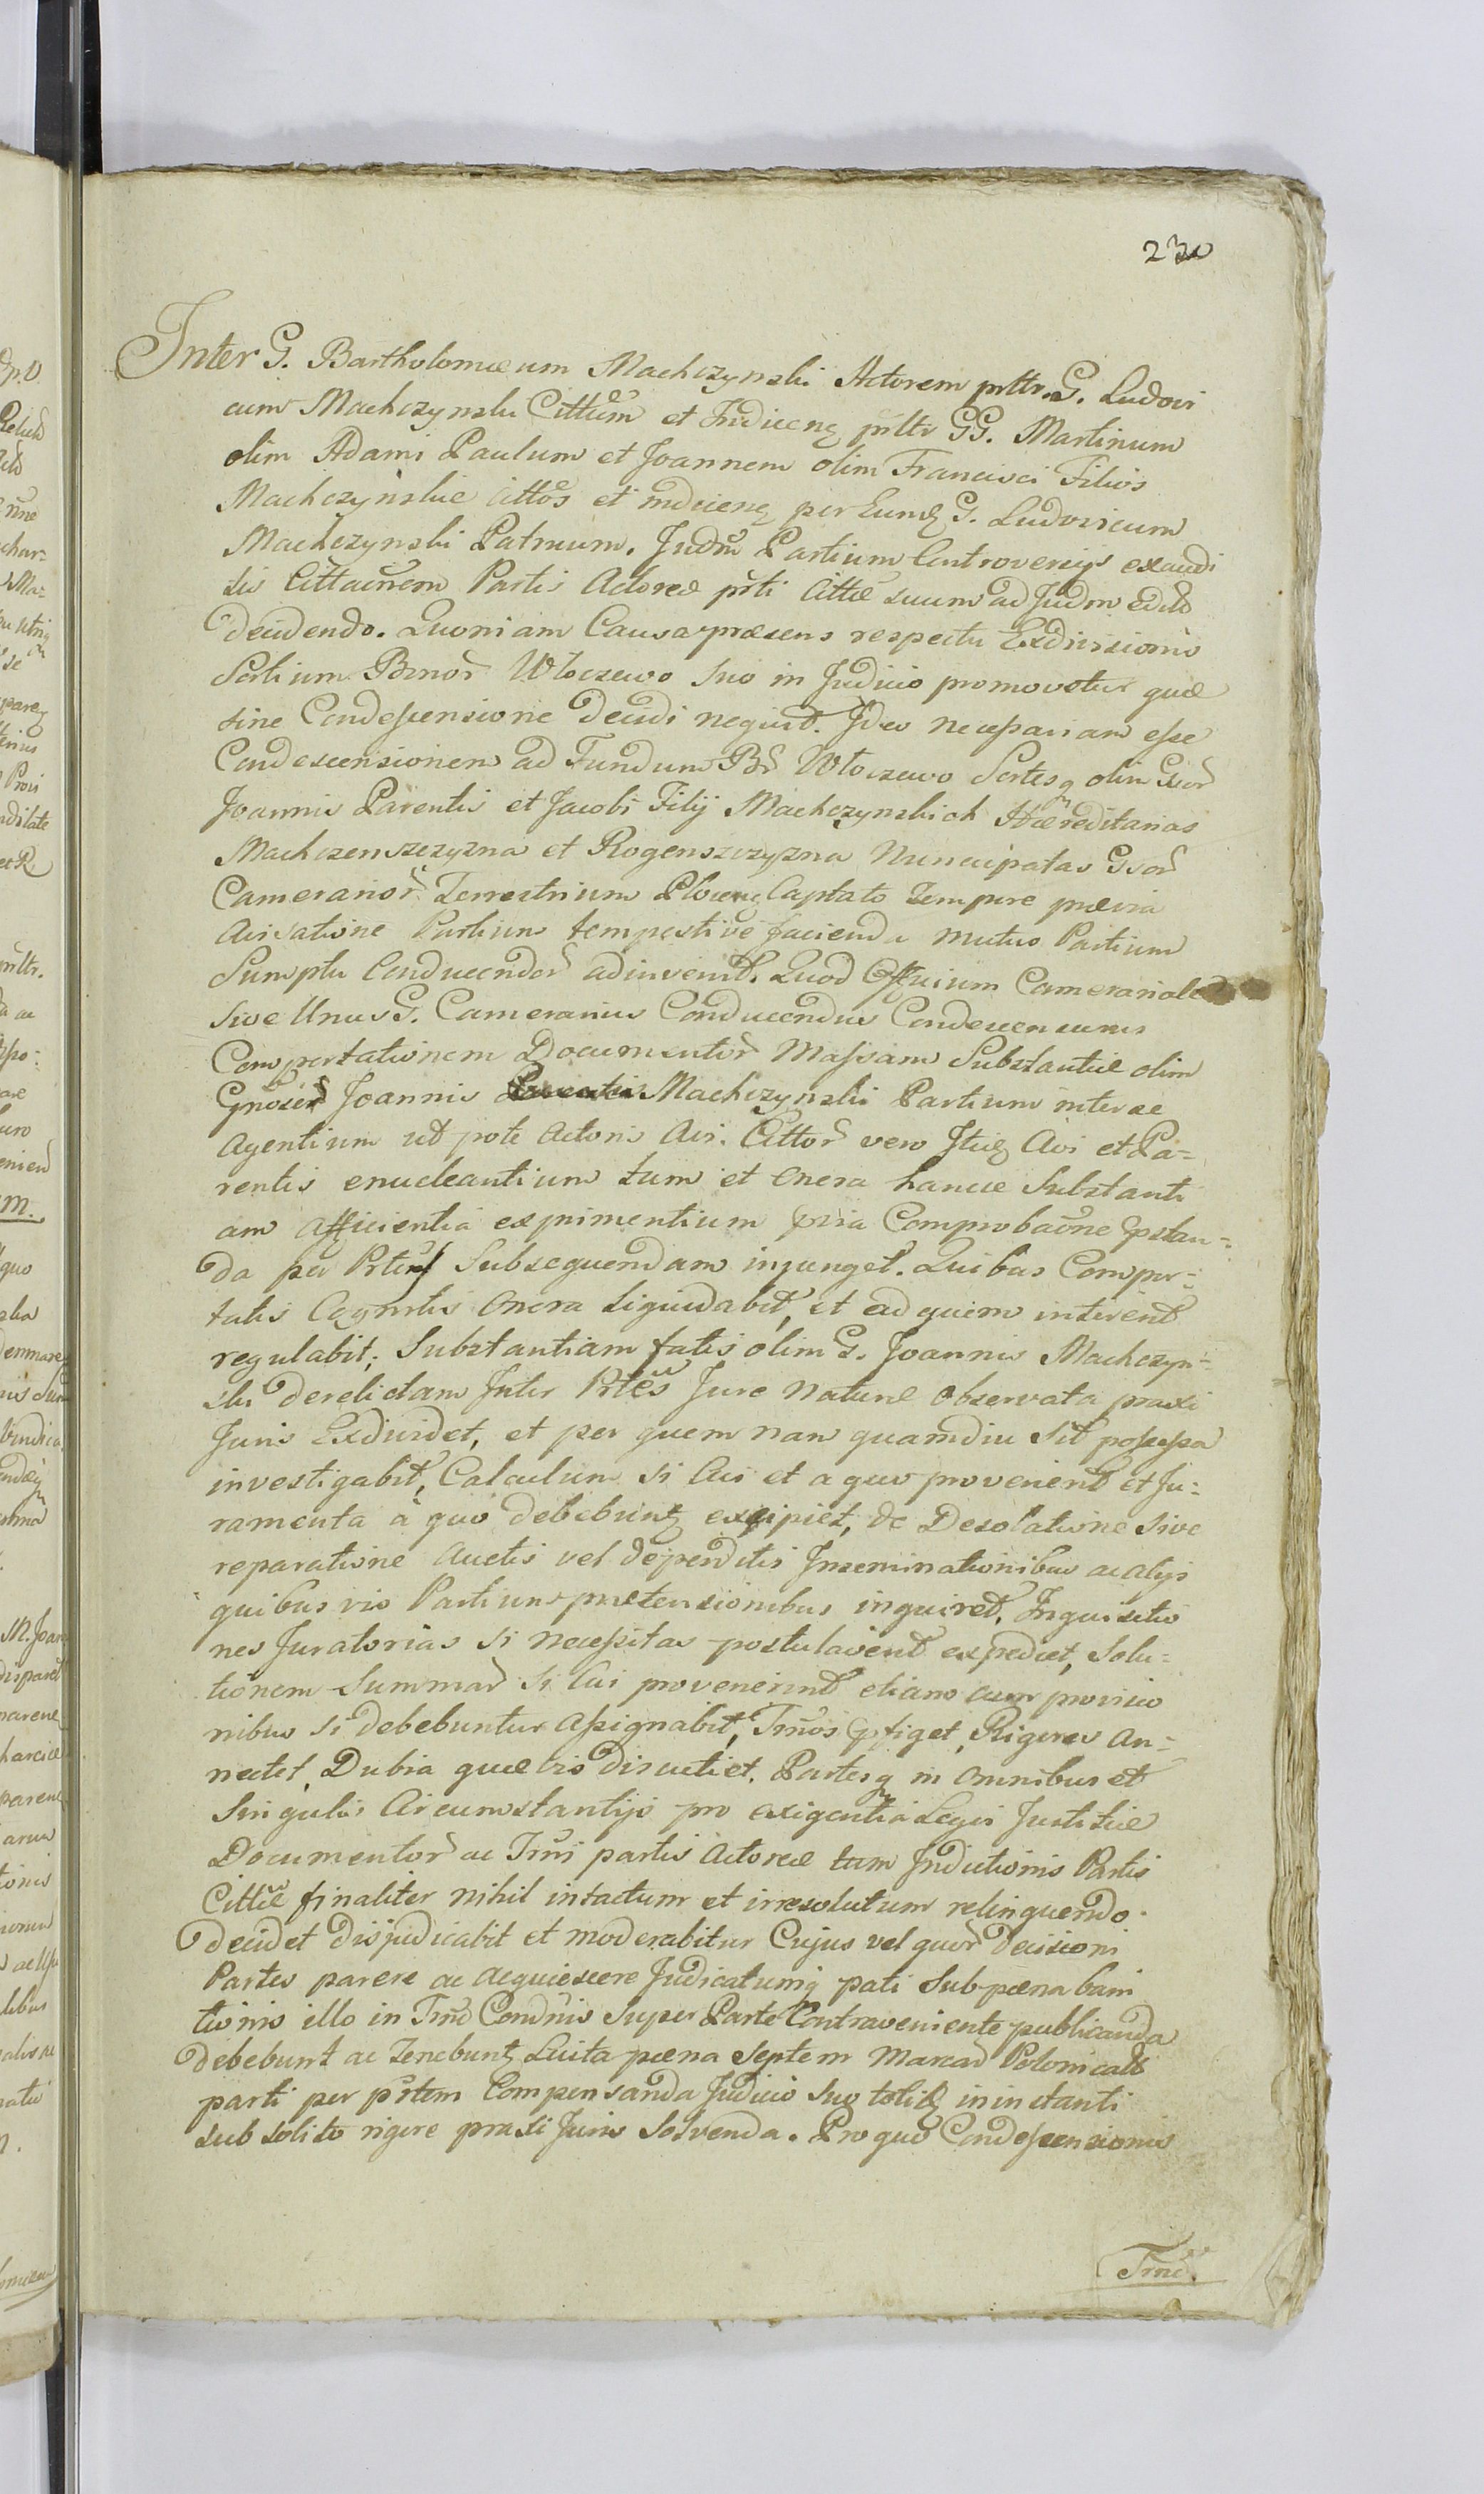 230
Inter G. Bartholomæum Machczynski Actorem prltr. G. Ludovi
cum Machczynski Cittum et Inducenq prltr GG. Martinum
olim Adami Paulum et Joannem olim Francisci Filios
Machczynskie Cittos et inducenq per Eund G. Ludovicum
Machczynski Patruum. Judm Partium Controversijs exaudi
tis Cittaõnem Partis Actoreæ prti Cittæ suum ad Judm edito
decidendo. Quoniam Causa præsens respectu Exdivisionis
Sortium Bonor Włoczewo Suo in Judicio promovetur quæ
sine Condescensione decidi nequit. Ideo necessariam esse
Condescensionem ad Fundum Br Włoczewo Sortesq olim Gsor
Joannis Parentis et Jacobi Filij Machczynskich Hæreditarias
Machczenszczyzna et Rogenszczyzna Nuncupatas Gsor
Camerarior Terrestrium Plocen Captato Tempore prævia
Avisatione Partium tempestive facienda mutuo Partium
Sumptu Conducendor adinvenit. Quod Officium Camerariale
sive Unus G. Camerarius Conducendus Condescensurus
Comportationem Documentor Massam Substantiæ olim
Gnoser Joannis Machczynski Partium inter se
Agentium ut pote Actoris Avi. Cittor vero Itid Avi et Pa=
rentis enucleantium tum et Onera hancce Substanti
am afficientia exprimentium pria Comprobaõne pstan=
da per Prtem Subsequendam injunget. Quibus Compor=
tatis Cognitis Onera liquidabit, et ad quem intererit
regulabit; Substantiam fatis olim G. Joannis Machczyn=
ski derelictam Inter Prtes Jure Naturæ observata praxi
Juris Exdividet, et per quem nam quamdiu sit possessa
investigabit, Calculum si Cui et a quo provenerit et Ju=
ramenta à quo debebunt excipiet, de Desolatione sive
reparatione Auctis vel deperditis Inseminationibus ac alijs
quibusvis Partium prætensionibus inquiret, Inquisitio
nes Juratorias si necessitas postulaverit expediet, Solu=
tionem Summar si Cui provenerint etiam cum provisio
nibus si debebuntur assignabit, Trnos pfiget, Rigores An=
nectet, Dubia quævis discutiet. Partesq in Omnibus et
Singulis Circumstantijs pro exigentia Legis Justitiæ
Documentor ac Trni partis Actoreæ tum Inductionis Partis
Cittæ finaliter nihil intactum et irresolutum relinquendo.
decidet disjudicabit et moderabitur Cujus vel quor Decisioni
Partes parere ac Acquiescere Judicatumq pati Sub pæna bani
tionis illo in Trno Condnis Super Parte Contraveniente publicanda
debebunt ac Tenebunt Luita pæna Septem Marcar Polonicali
parti per prtem Compensanda Judicio Suo in instanti
sub solito rigore praxi Juris Solvenda. Pro quo Condescensionis
Trno.